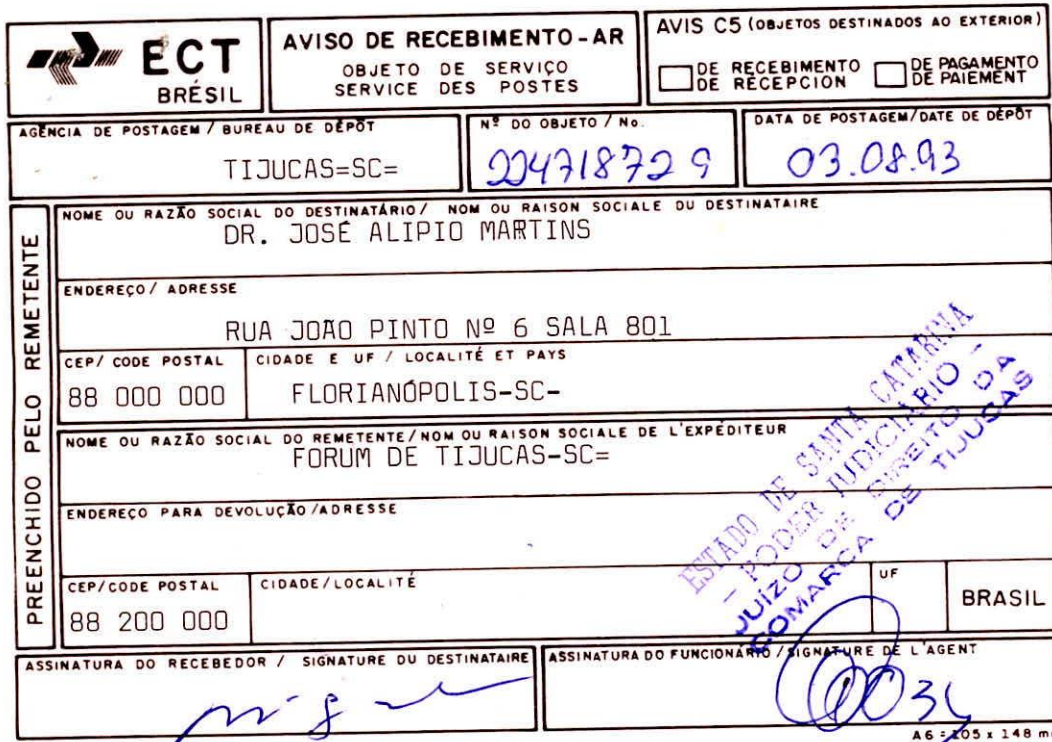 ECT
BRÉSIL
AVISO DE RECEBIMENTO-AR
OBJETO DE SERVIÇO
SERVICE DES POSTES
AVIS C5 (OBJETOS DESTINADOS AO EXTERIOR)
DE RECEBIMENTO
DE RECEPCION
DE PAGAMENTO
DE PAIEMENT
AGÊNCIA DE POSTAGEM / BUREAU DE DÉPÔT
TIJUCAS=SC=
Nº DO OBJETO / No.
224718729
DATA DE POSTAGEM/DATE DE DÉPÔT
03.08.93
PREENCHIDO PELO REMETENTE
NOME OU RAZÃO SOCIAL DO DESTINATÁRIO / NOM OU RAISON SOCIALE DU DESTINATAIRE
DR. JOSÉ ALIPIO MARTINS
ENDEREÇO / ADRESSE
RUA JOÃO PINTO Nº 6 SALA 801
CEP/ CODE POSTAL
88 000 000
CIDADE E UF / LOCALITÉ ET PAYS
FLORIANÓPOLIS-SC-
NOME OU RAZÃO SOCIAL DO REMETENTE/NOM OU RAISON SOCIALE DE L'EXPÉDITEUR
FORUM DE TIJUCAS-SC=
ENDEREÇO PARA DEVOLUÇÃO /ADRESSE
CEP/CODE POSTAL
88 200 000
CIDADE/LOCALITÉ
UF
BRASIL
ESTADO DE SANTA CATARINA
- PODER JUDICIARIO -
JUÍZO DE DIREITO DA
COMARCA DE TIJUCAS
ASSINATURA DO RECEBEDOR / SIGNATURE DU DESTINATAIRE
ASSINATURA DO FUNCIONÁRIO /SIGNATURE DE L'AGENT
A6 = 105 x 148 m